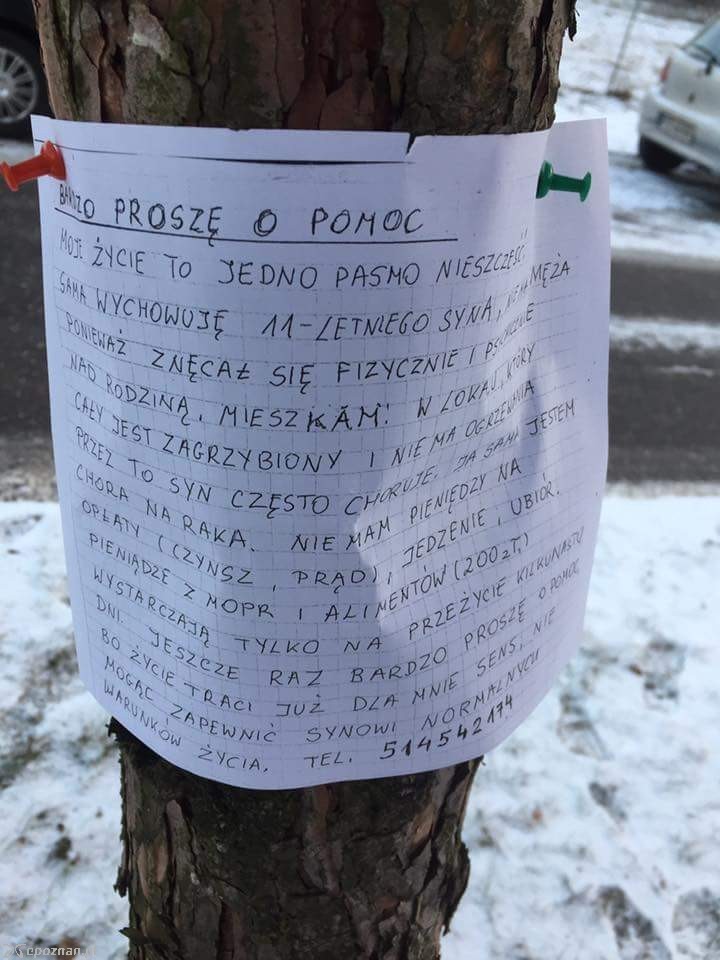 BARDZO PROSZĘ O POMOC
MOJE ŻYCIE TO JEDNO PASMO NIESZCZĘŚĆ.
SAMA WYCHOWUJĘ 11-LETNIEGO SYNA, NIE MA MĘŻA
PONIEWAŻ ZNĘCAŁ SIĘ FIZYCZNIE I PSYCHICZNIE
NAD RODZINĄ, MIESZKAM! W LOKALU, KTÓRY
CAŁY JEST ZAGRZYBIONY I NIE MA OGRZEWANIA
PRZEZ TO SYN CZĘSTO CHORUJE, JA SAMA JESTEM
CHORA NA RAKA. NIE MAM PIENIĘDZY NA
OPŁATY (CZYNSZ, PRĄD), JEDZENIE, UBIÓR.
PIENIĄDZE Z MOPR I ALIMENTÓW (200 zł,)
WYSTARCZAJĄ TYLKO NA PRZEŻYCIE KILKUNASTU
DNI. JESZCZE RAZ BARDZO PROSZĘ O POMOC,
BO ŻYCIE TRACI JUŻ DLA MNIE SENS, NIE
MOGĄC ZAPEWNIĆ SYNOWI NORMALNYCH
WARUNKÓW ŻYCIA. TEL. 514542174
epoznan.pl